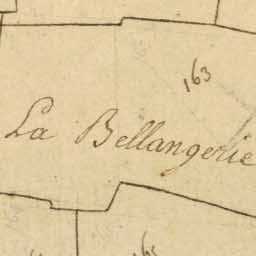 163
La Bellangerie